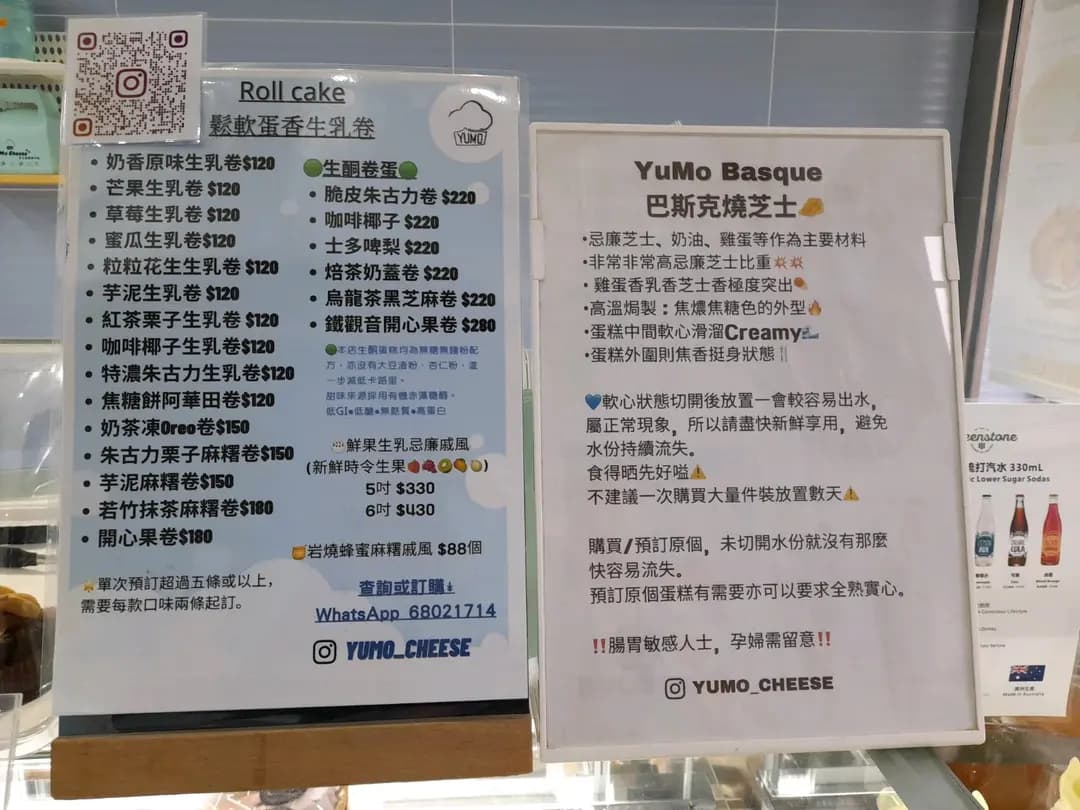 Roll cake
鬆軟蛋香生乳卷
YUMO
• 奶香原味生乳卷$120
• 芒果生乳卷 $120
• 草莓生乳卷 $120
• 蜜瓜生乳卷$120
• 粒粒花生生乳卷 $120
• 芋泥生乳卷 $120
• 紅茶栗子生乳卷 $120
• 咖啡椰子生乳卷$120
• 特濃朱古力生乳卷$120
• 焦糖餅阿華田卷$120
• 奶茶凍Oreo卷$150
• 朱古力栗子麻糬卷$150
• 芋泥麻糬卷$150
• 若竹抹茶麻糬卷$180
• 開心果卷$180
⭐單次預訂超過五條或以上，
需要每款口味兩條起訂。
🟢生酮卷蛋🟢
• 脆皮朱古力卷 $220
• 咖啡椰子 $220
• 士多啤梨 $220
• 焙茶奶蓋卷 $220
• 烏龍茶黑芝麻卷 $220
• 鐵觀音開心果卷 $280
🟢本店生酮蛋糕均為無糖無麵粉配
方，亦沒有大豆渣粉、杏仁粉，進
一步減低卡路里。
甜味來源採用有機赤藻糖醇。
低GI●低醣●無麩質●高蛋白
鮮果生乳忌廉戚風
(新鮮時令生果🍓🍇🥝🥭🍈)
5吋 $330
6吋 $430
🍯岩燒蜂蜜麻糬戚風 $88個
查詢或訂購↓
WhatsApp 68021714
YUMO_CHEESE
YuMo Basque
巴斯克燒芝士🧀
•忌廉芝士、奶油、雞蛋等作為主要材料
•非常非常高忌廉芝士比重💥💥
• 雞蛋香乳香芝士香極度突出
•高溫焗製：焦燶焦糖色的外型🔥
•蛋糕中間軟心滑溜Creamy
•蛋糕外圍則焦香挺身狀態🍴
💙軟心狀態切開後放置一會較容易出水，
屬正常現象，所以請盡快新鮮享用，避免
水份持續流失。
食得晒先好嗌⚠️
不建議一次購買大量件裝放置數天⚠️
購買/預訂原個，未切開水份就沒有那麼
快容易流失。
預訂原個蛋糕有需要亦可以要求全熟實心。
‼️腸胃敏感人士，孕婦需留意‼️
YUMO_CHEESE
enstone
打汽水 330mL
c Lower Sugar Sodas
Made in Australia